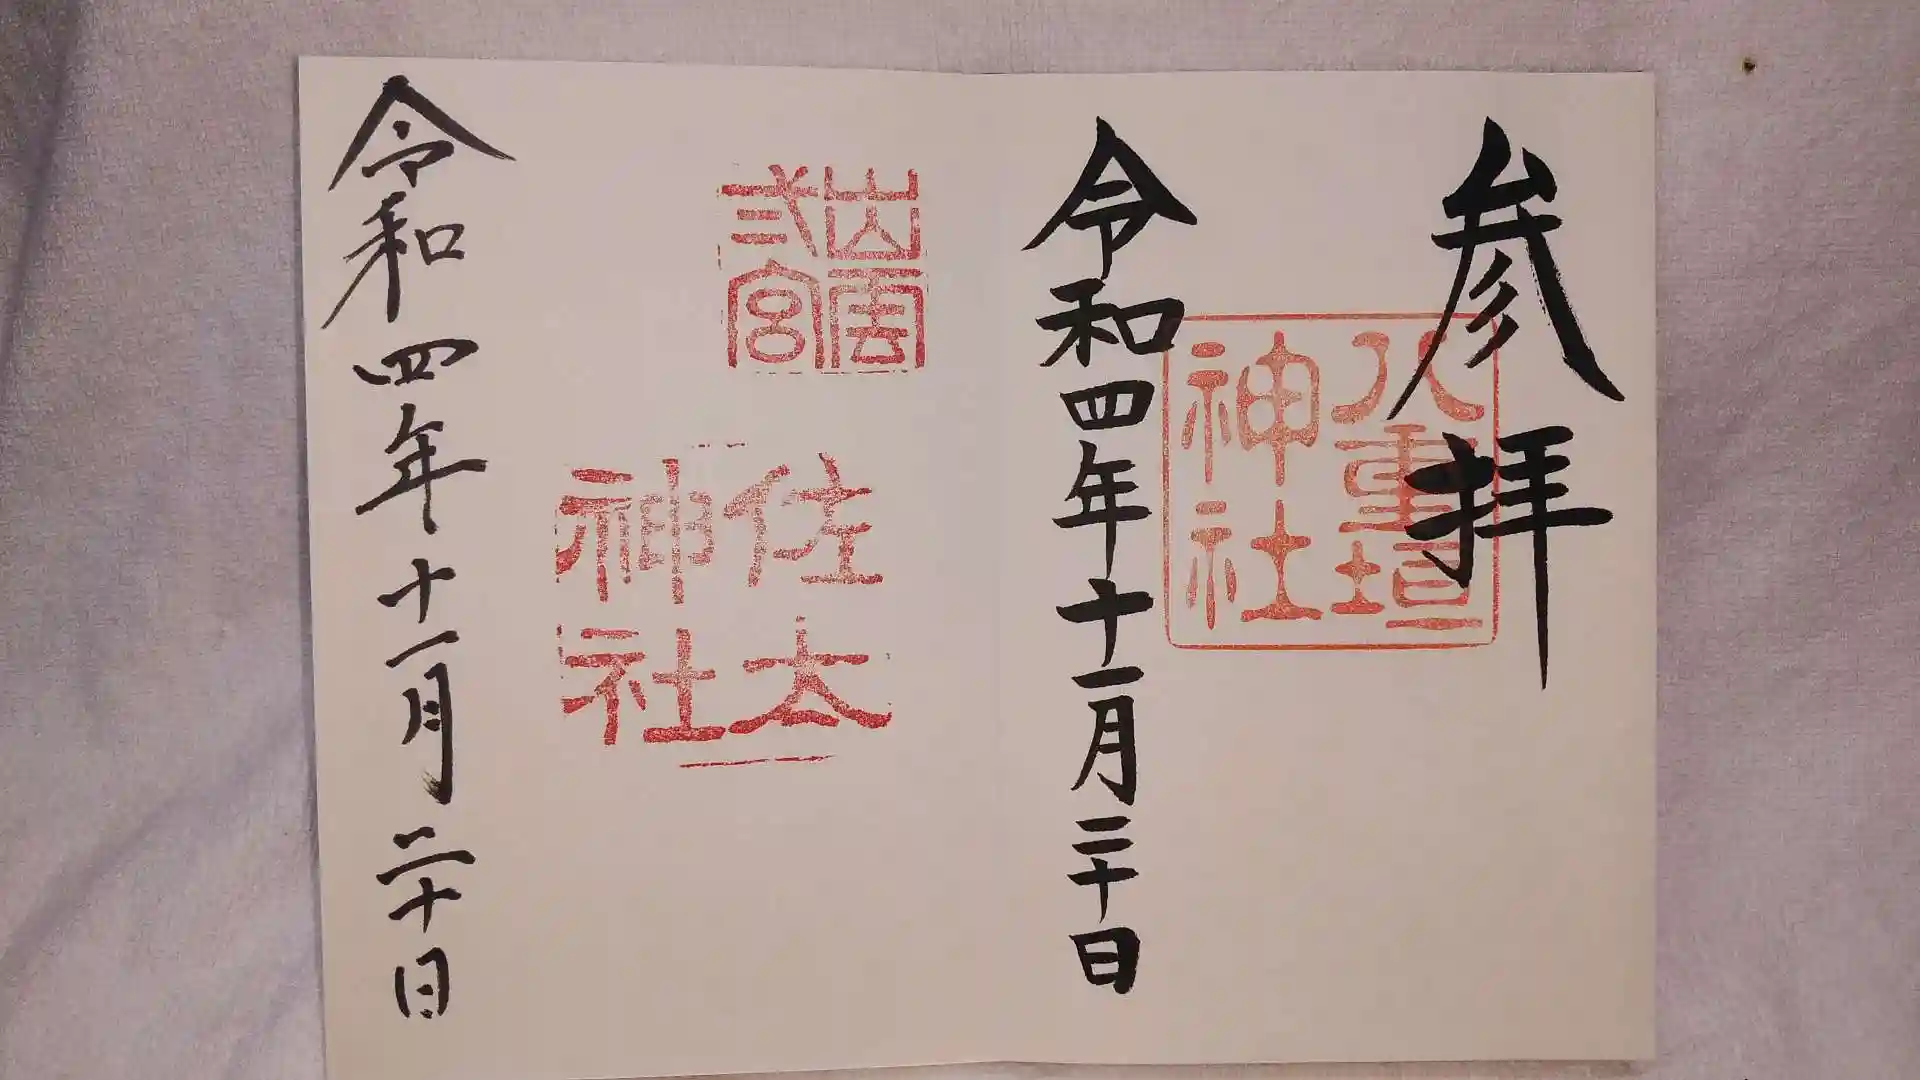 参拝
八重垣
神社
令和四年十一月二十日
出雲
弍宮
佐太
神社
令和四年十一月二十日